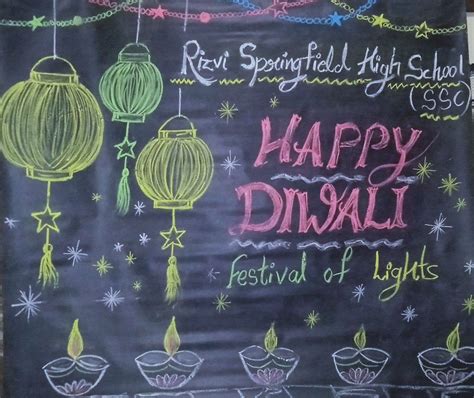 Rizvi Springfield High School
(SSC)
HAPPY
DIWALI
Festival of Lights